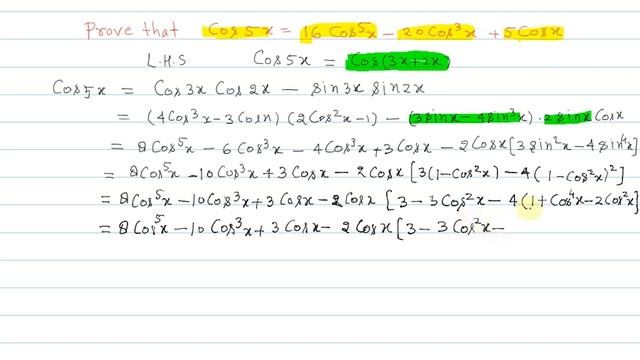 Prove that Cos5x = 16 Cos⁵x - 20Cos³x + 5Cosx
L.H.S Cos5x = Cos(3x+2x)
Cos5x = Cos3x Cos2x - sin3x sin2x
= (4Cos³x - 3Cosx) (2Cos²x - 1) - (3sinx - 4sin³x) . 2sinx Cosx
= 8Cos⁵x - 6Cos³x - 4Cos³x + 3Cosx - 2Cosx [3sin²x - 4sin⁴x]
= 8Cos⁵x - 10Cos³x + 3Cosx - 2Cosx [3(1-Cos²x) - 4(1-Cos²x)²]
= 8Cos⁵x - 10Cos³x + 3Cosx - 2Cosx [3 - 3Cos²x - 4(1+Cos⁴x - 2Cos²x)]
= 8Cos⁵x - 10Cos³x + 3Cosx - 2Cosx [3 - 3Cos²x -